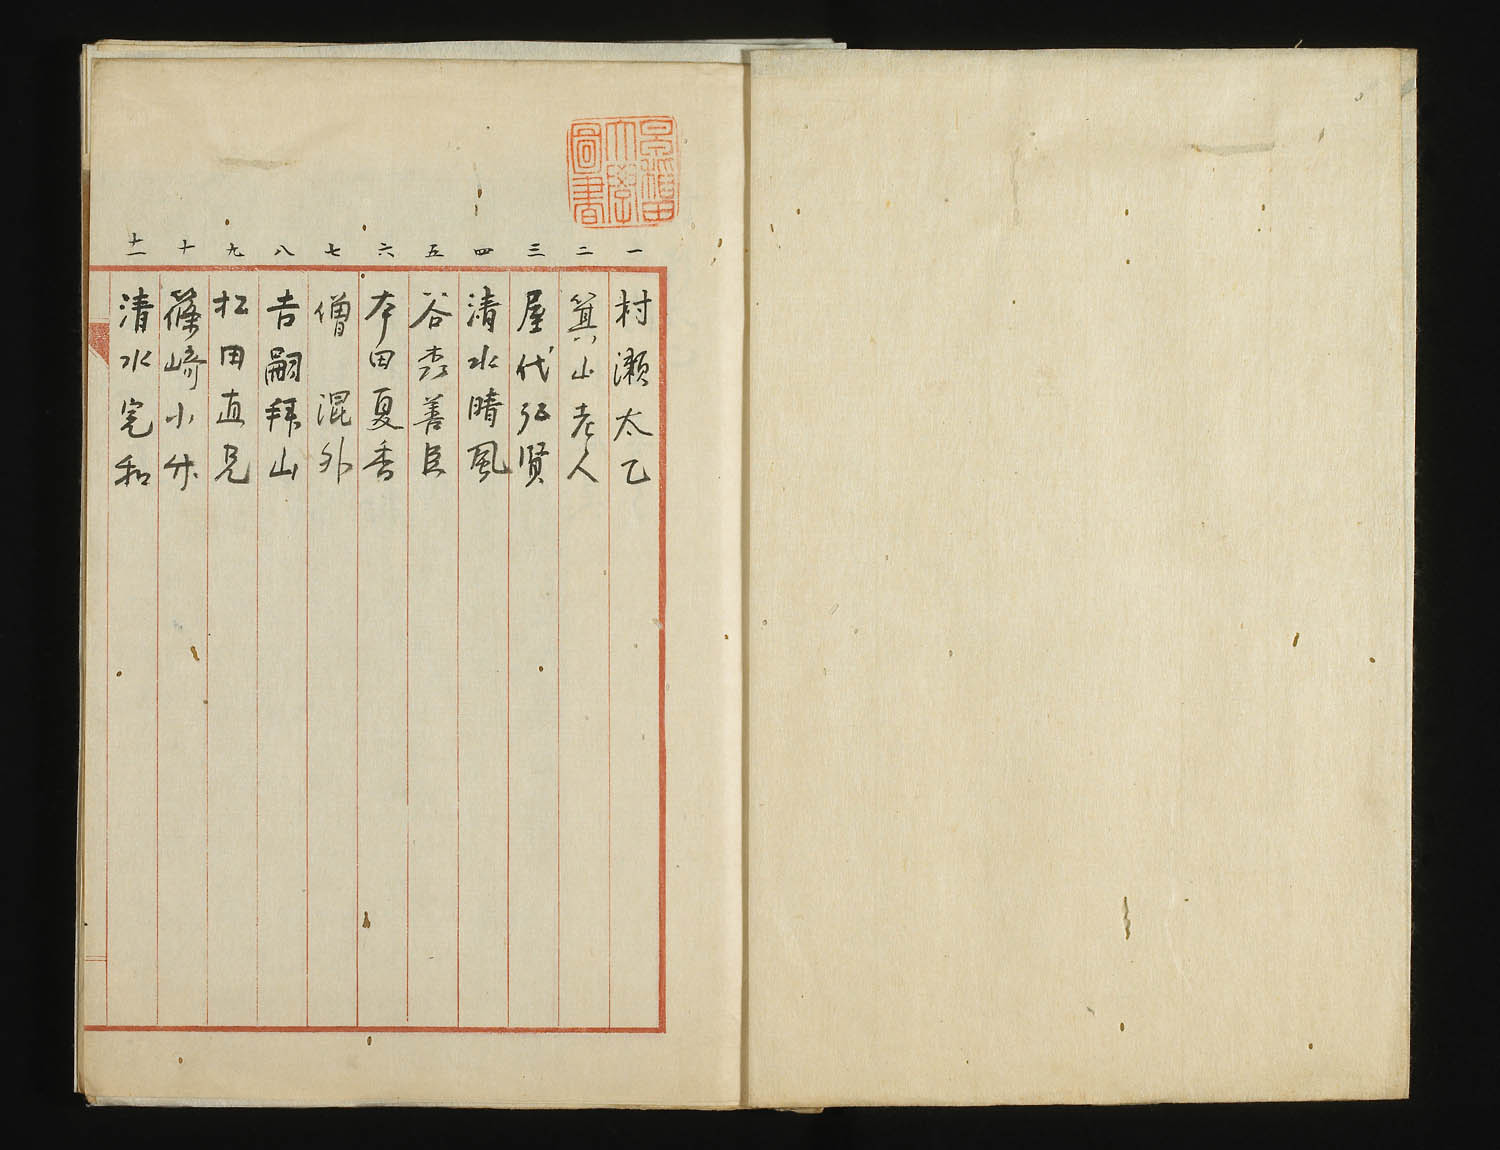 早稲田
大學
圖書
一 村瀬太乙
二 箕山老人
三 屋代弘賢
四 清水晴風
五 谷森善臣
六 本田夏香
七 僧 混外
八 吉嗣拝山
九 松田直兄
十 篠崎小竹
十一 清水和